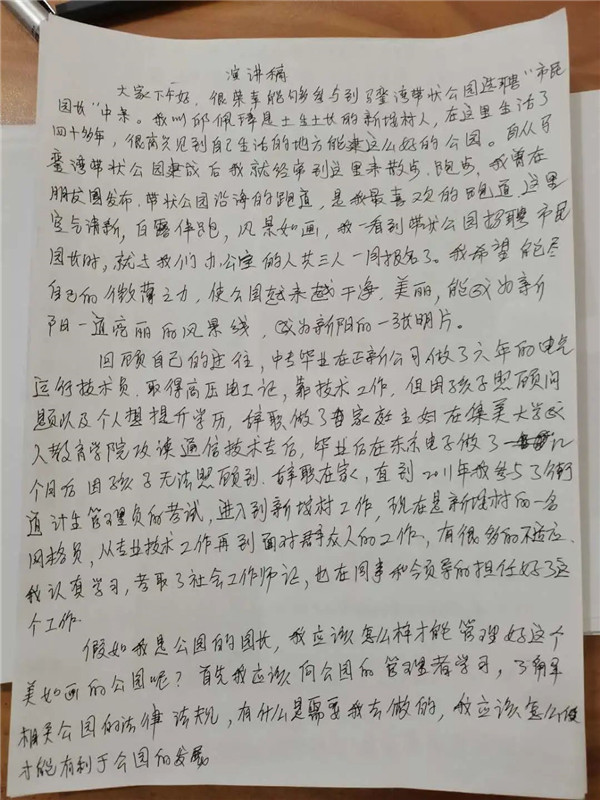 演讲稿
大家下午好，很荣幸能够参与到马銮湾带状公园选聘“市民
园长”中来。我叫邱佩瑋是土生土长的新垵村人，在这里生活了
四十多年，很高兴见到自己生活的地方能建这么好的公园。自从马
銮湾带状公园建成后我就经常到这里来散步、跑步，我曾在
朋友圈发布，带状公园沿海的跑道，是我最喜欢的跑道，这里
空气清新，白鹭伴跑，风景如画，我一看到带状公园招聘市民
园长时，就与我们办公室的人共三人一同报名了。我希望能尽
自己的微薄之力，使公园越来越干净、美丽，能成为新
阳一道亮丽的风景线，成为新阳的一张明片。
回顾自己的过往，中专毕业在正新公司做了六年的电气
运行技术员，取得高压电工证，靠技术工作，但因孩子照顾问
题以及个人想提升学历，辞职做了家庭主妇在集美大学成
人教育学院攻读通信技术专后，毕业后在东京电子做了
个月后因孩子无法照顾到，辞职在家，直到2011年我参与了街
道计生管理员的考试，进入到新垵村工作，现在是新垵村的一名
网格员，从专业技术工作再到面对群众人的工作，有很多的不适应，
我认真学习，考取了社会工作师证，也在同事和领导的担任好了这
个工作。
假如我是公园的园长，我应该怎么样才能管理好这个
美如画的公园呢？首先我应该向公园的管理者学习，了解
相关公园的法律法规，有什么是需要我去做的，我应该怎么做
才能有利于公园的发展。